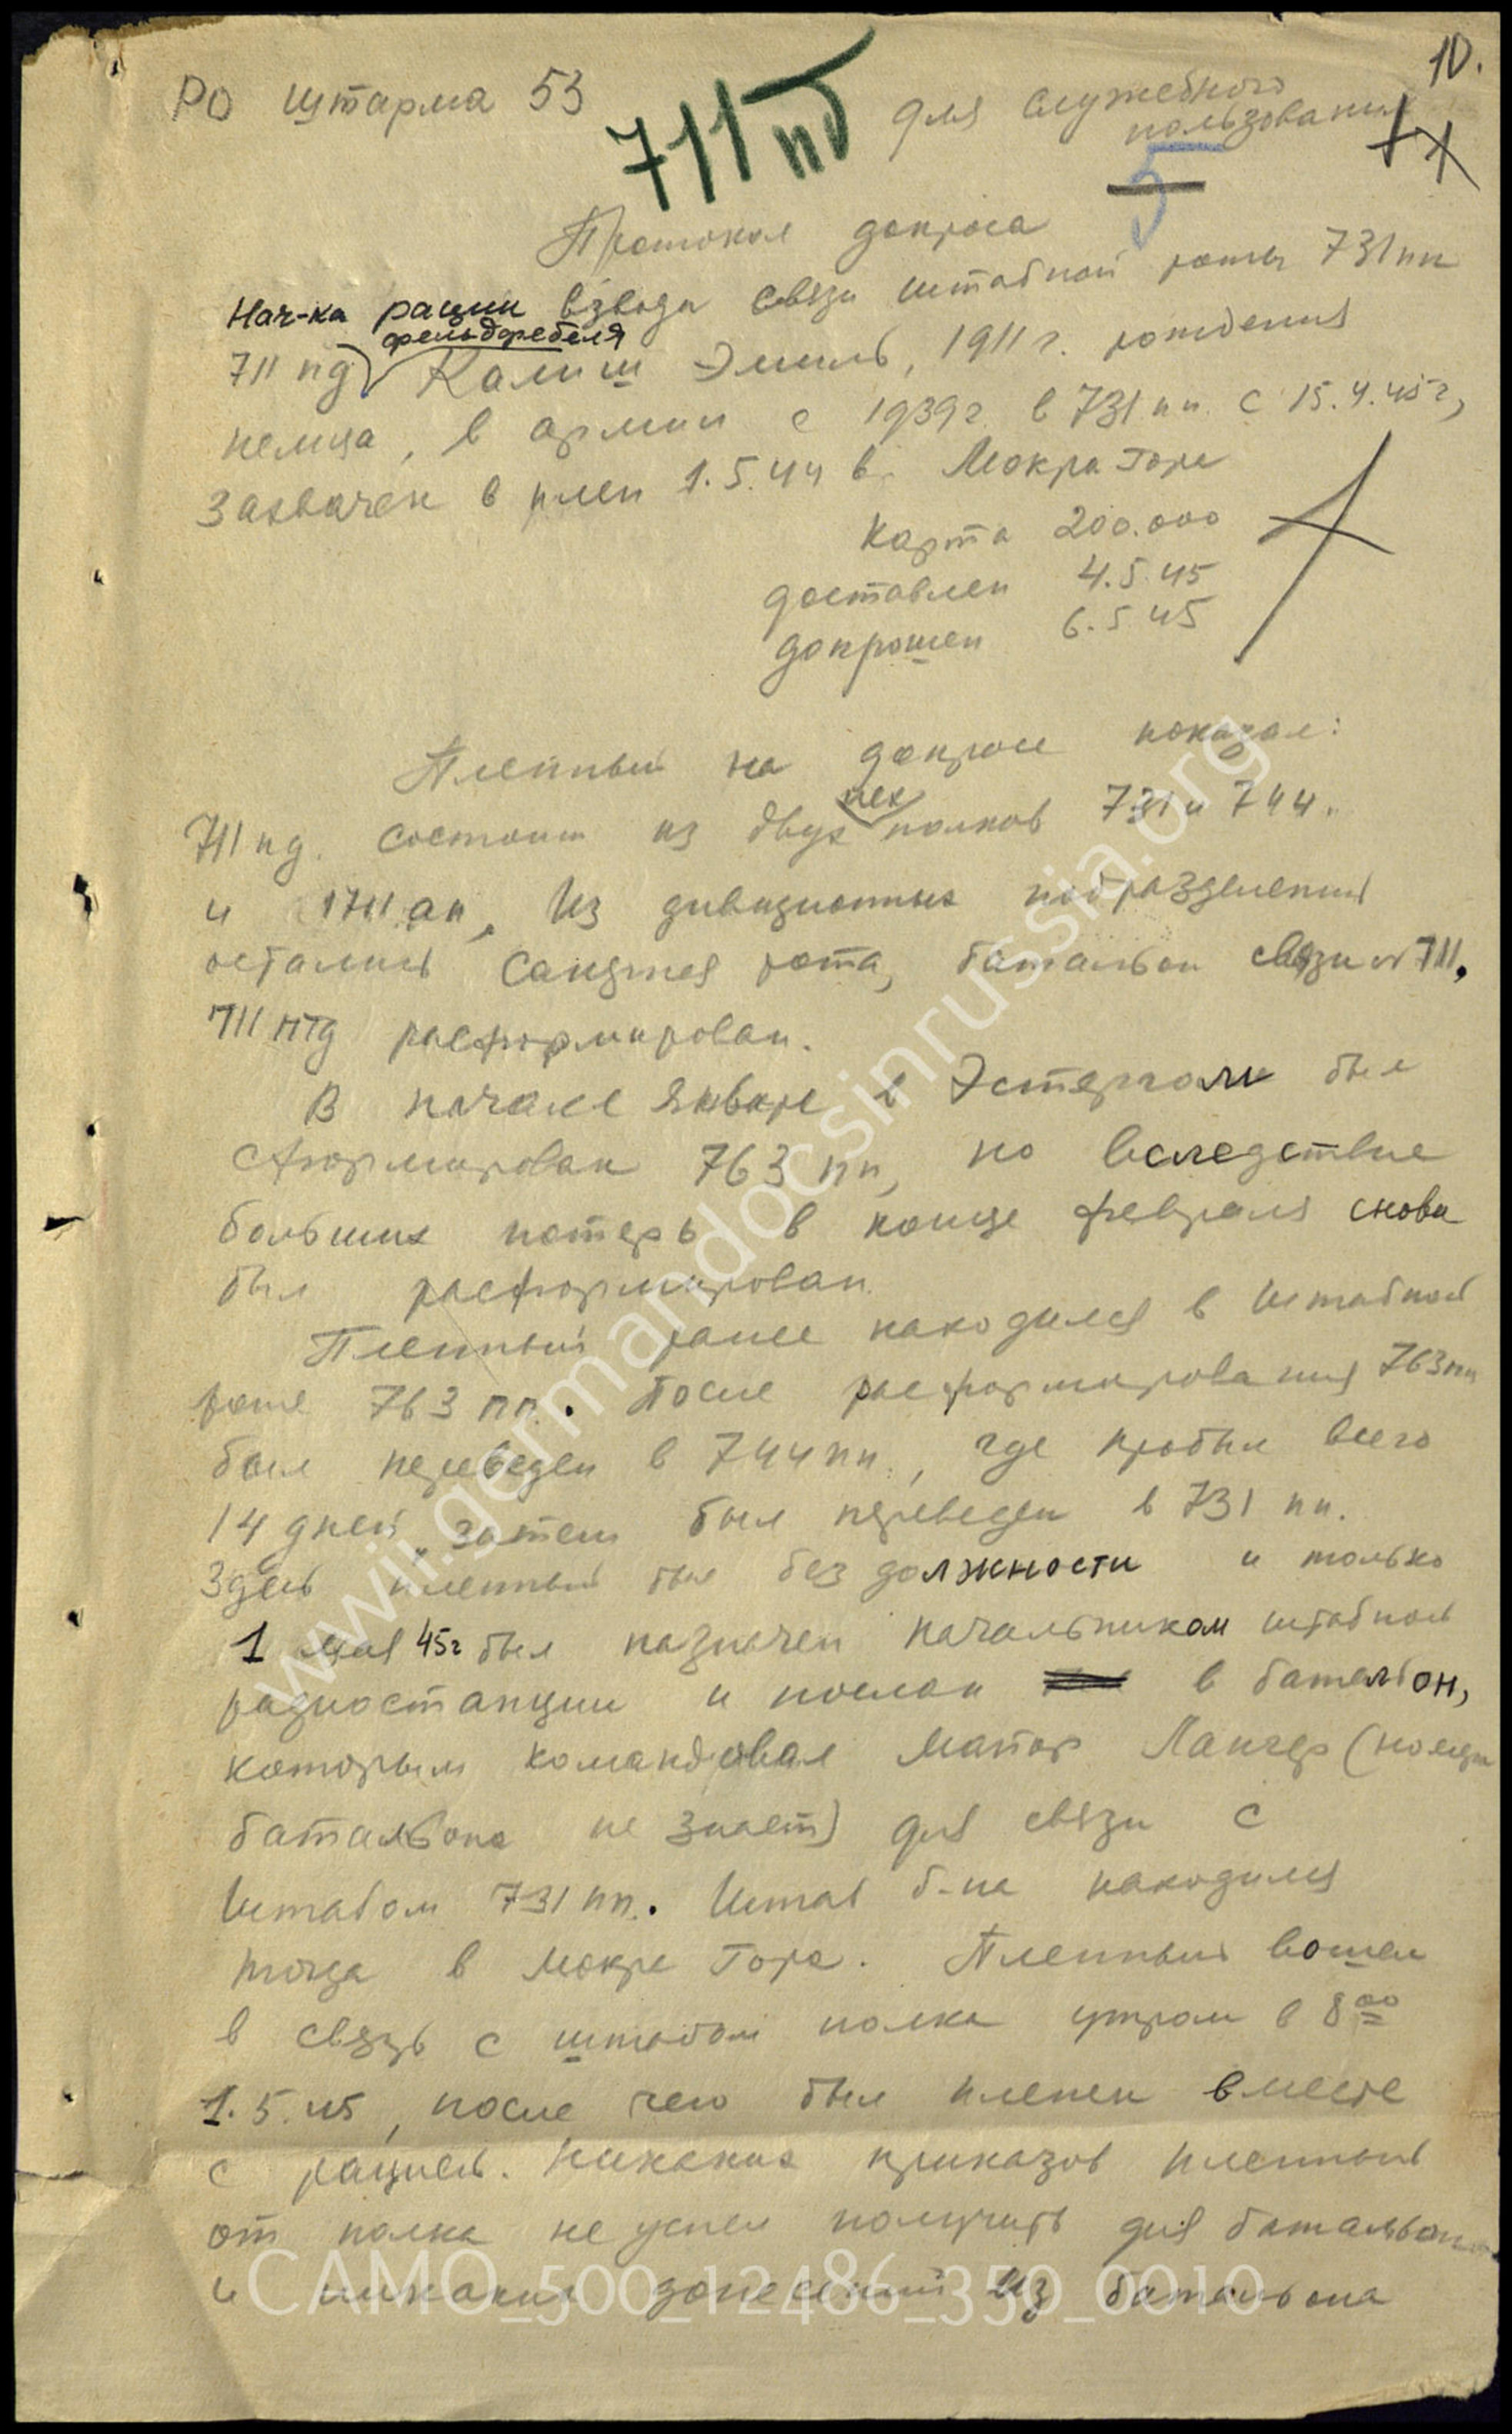 10.
РО Штарма 53
711 пд
для служебного
пользования
5
Протокол допроса
Нач-ка рации взвода связи штабной роты 731 пп
фельдфебеля
711 пд Калиш Эмиль, 1911 г. рождения
немца, в армии с 1939г. в 731 пп. с 15.4.45г,
Захвачен в плен 1.5.44 в Мокра Гора
Карта 200.000
доставлен 4.5.45
допрошен 6.5.45
Пленный на допросе показал:
711 пд. состоит из двух пех полков 731 и 744.
и 1711 ап, Из дивизионных подразделений
остались Санитная рота, батальон связи № 711.
711 ПТД расформирован.
В начале января в Эстергоме был
сформирован 763 пп, но вследствие
больших потерь в конце февраля снова
был расформирован.
Пленный ранее находился в штабной
роте 763 пп. После расформирования 763пп
был переведен в 744 пп., где пробыл всего
14 дней, затем был переведен в 731 пп.
Здесь пленный был без должности и только
1 мая 45г был назначен начальником штабной
радиостанции и послан в батальон,
которым командовал Майор Лангер (номера
батальона не знает) для связи с
Штабом 731 пп. Штаб б-на находился
тогда в Мокра Гора. Пленный вошел
в связь с штабом полка утром в 8 00
1.5.45, после чего был пленен вместе
с рацией. Никаких приказов пленный
от полка не успел получить для батальона
и никаких донесений из батальона
www.wwii.germandocsinrussia.org
CAMO_500_12486_359_0010